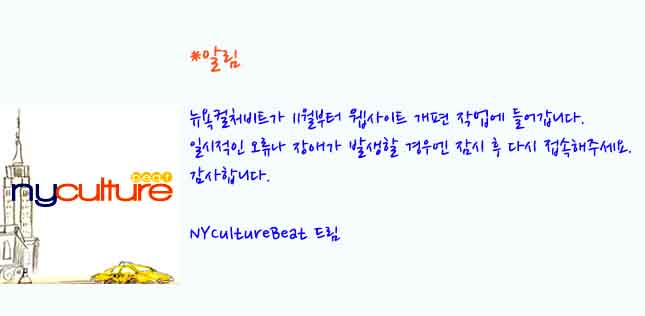 *알림
뉴욕컬처비트가 11월부터 웹사이트 개편 작업에 들어갑니다.
일시적인 오류나 장애가 발생할 경우엔 잠시 후 다시 접속해주세요.
감사합니다.
NYCultureBeat 드림
nyculture
beat